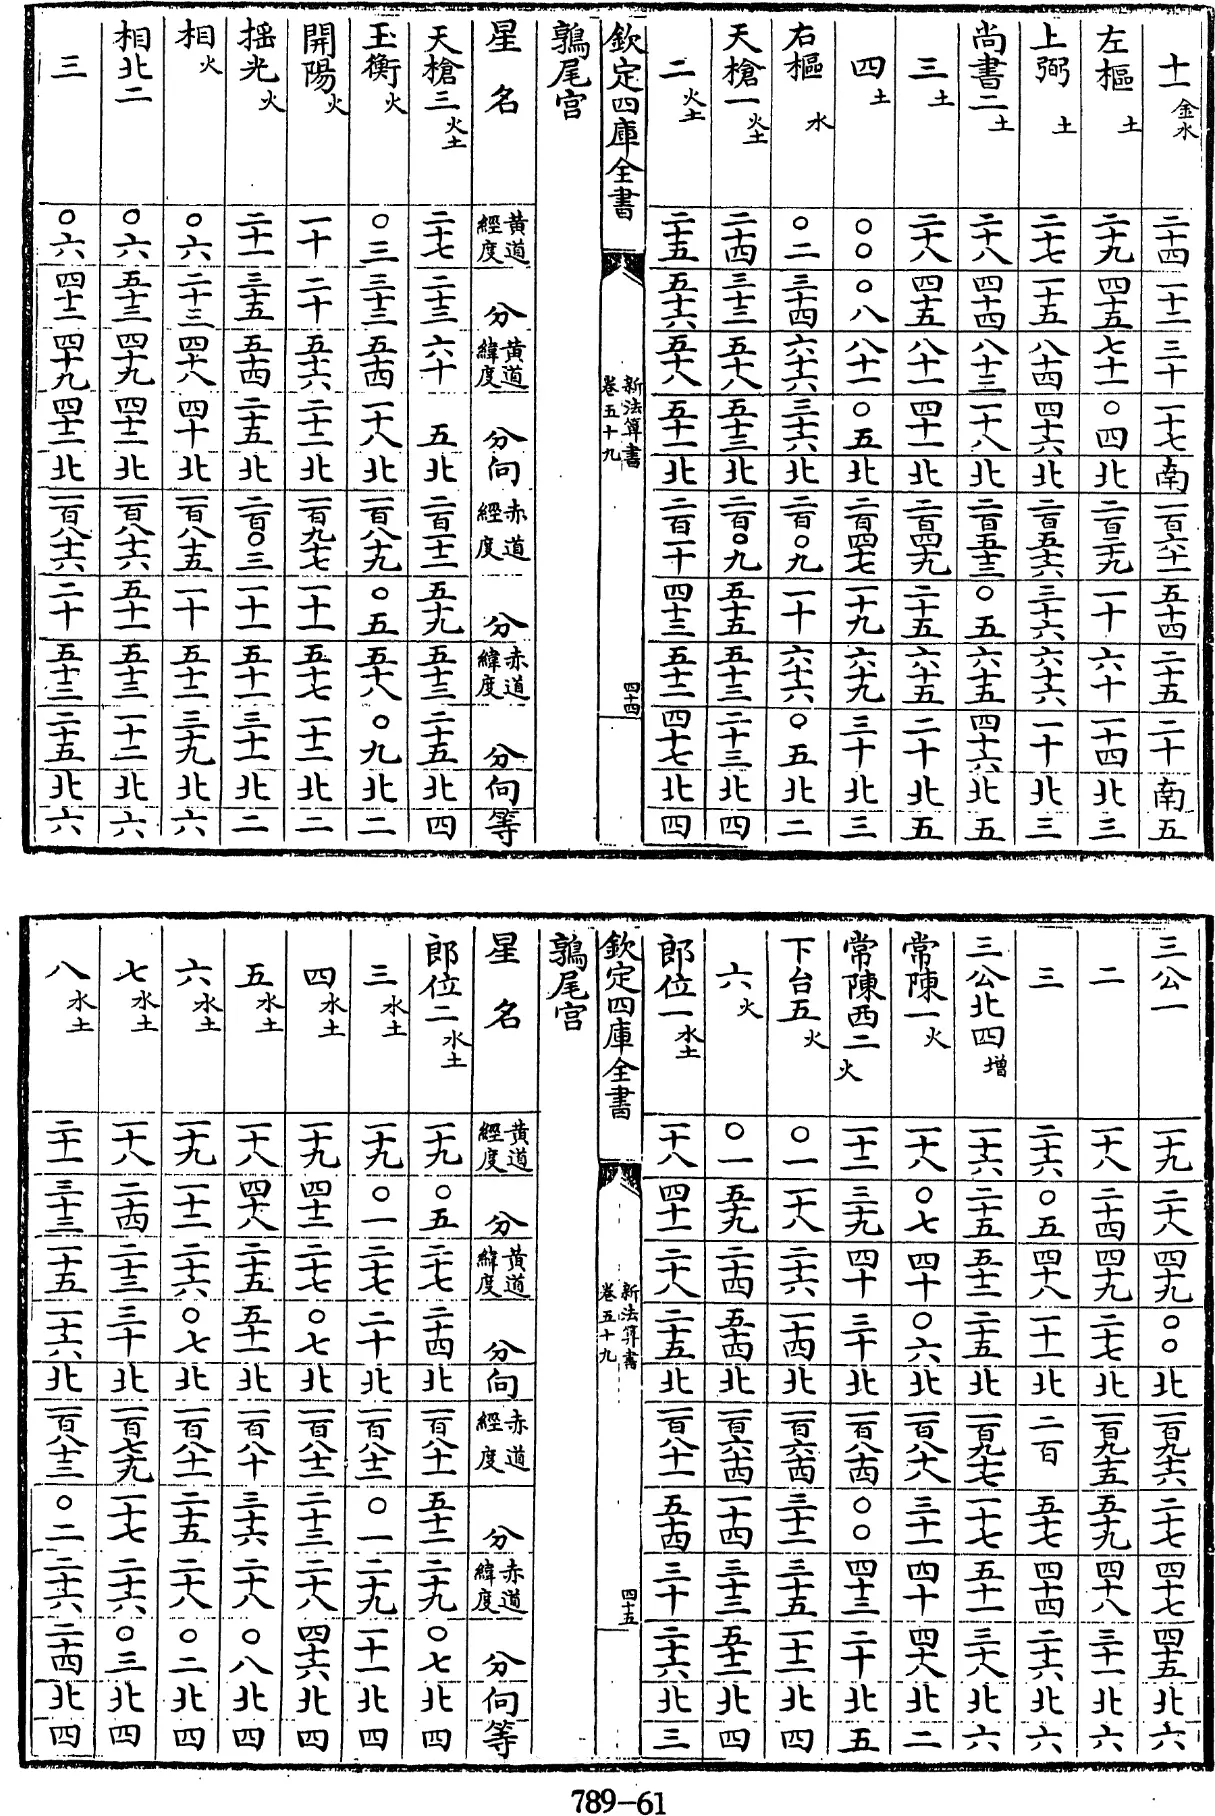 十一 金水 二十四 一十二 三十 一十七 南 一百六十一 五十四 二十五 二十 南 五
左樞 土 二十九 四十五 七十一 〇四 北 二百二十九 一十 六十 一十四 北 三
上弼 土 二十七 一十五 八十四 四十六 北 二百五十六 三十六 六十六 一十 北 三
尚書二 土 二十八 四十四 八十三 一十八 北 二百五十三 〇五 六十五 四十六 北 五
三 土 二十八 四十五 八十一 四十一 北 二百四十九 二十五 六十五 二十 北 五
四 土 〇〇 〇八 八十一 〇五 北 二百四十七 一十九 六十九 三十 北 三
右樞 水 〇二 三十四 六十六 三十六 北 二百〇九 一十 六十六 〇五 北 二
天槍一 火土 二十四 三十三 五十八 五十三 北 二百〇九 五十五 五十三 二十三 北 四
二 火土 二十五 五十六 五十八 五十一 北 二百一十 四十三 五十二 四十七 北 四
欽定四庫全書 新法算書 卷五十九 四十四
鶉尾宫
星名 黃道經度 分 黃道緯度 分 向 赤道經度 分 赤道緯度 分 向 等
天槍三 火土 二十七 二十三 六十 五 北 二百一十二 五十九 五十三 二十五 北 四
玉衡 火 〇三 三十三 五十四 一十八 北 一百八十九 〇五 五十八 〇九 北 二
開陽 火 一十 二十 五十六 二十二 北 一百九十七 一十一 五十七 一十二 北 二
揺光 火 二十一 三十五 五十四 二十五 北 二百〇三 一十一 五十一 三十一 北 二
相 火 〇六 二十三 四十八 四十 北 一百八十五 一十 五十二 三十九 北 六
相北二 〇六 五十三 四十九 四十二 北 一百八十六 五十一 五十三 一十二 北 六
三 〇六 四十二 四十九 四十二 北 一百八十六 二十 五十三 二十五 北 六
三公一 一十九 二十八 四十九 〇〇 北 一百九十六 二十七 四十七 四十五 北 六
二 一十八 二十四 四十九 二十七 北 一百九十五 五十九 四十八 三十一 北 六
三 二十六 〇五 四十八 一十一 北 二百 五十七 四十四 二十六 北 六
三公北四 增 一十六 二十五 五十二 二十五 北 一百九十七 一十七 五十一 三十八 北 六
常陳一 火 一十八 〇七 四十 〇六 北 一百八十八 三十一 四十 四十八 北 二
常陳西二 火 一十二 三十九 四十 三十 北 一百八十四 〇〇 四十三 二十 北 五
下台五 火 〇一 一十八 二十六 一十四 北 一百六十四 三十二 三十五 一十二 北 四
六 火 〇一 五十九 二十四 五十四 北 一百六十四 一十四 三十三 五十二 北 四
郎位一 水土 一十八 四十一 二十八 二十五 北 一百八十一 五十四 三十 二十六 北 三
欽定四庫全書 新法算書 卷五十九 四十五
鶉尾宫
星名 黃道經度 分 黃道緯度 分 向 赤道經度 分 赤道緯度 分 向 等
郎位二 水土 一十九 〇五 二十七 二十四 北 一百八十一 五十二 二十九 〇七 北 四
三 水土 一十九 〇一 二十七 二十 北 一百八十二 〇一 二十九 一十一 北 四
四 水土 一十九 四十二 二十七 〇七 北 一百八十二 二十三 二十八 四十六 北 四
五 水土 一十八 四十八 二十五 五十一 北 一百八十 三十六 二十八 〇八 北 四
六 水土 一十九 一十二 二十六 〇七 北 一百八十一 二十五 二十八 〇二 北 四
七 水土 一十八 二十四 二十三 三十 北 一百七十九 一十七 二十六 〇三 北 四
八 水土 二十一 三十三 二十五 一十六 北 一百八十三 〇二 二十六 二十四 北 四
789-61